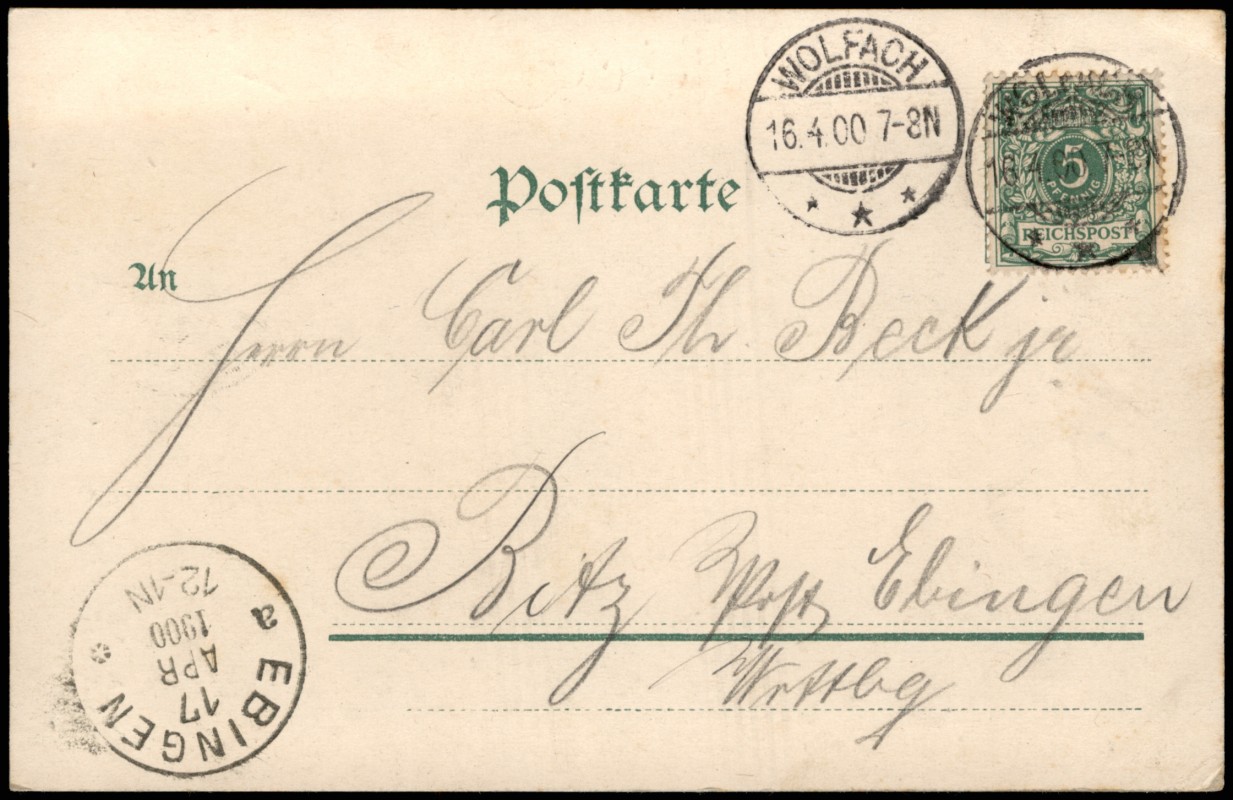 WOLFACH
16.4.00 7-8N
5
PFENNIG
REICHSPOST
Postkarte
An
Herrn Carl Th Beck jr
Bitz Post Ebingen
Wrttbg
a EBINGEN
17
APR
1900
12-1N